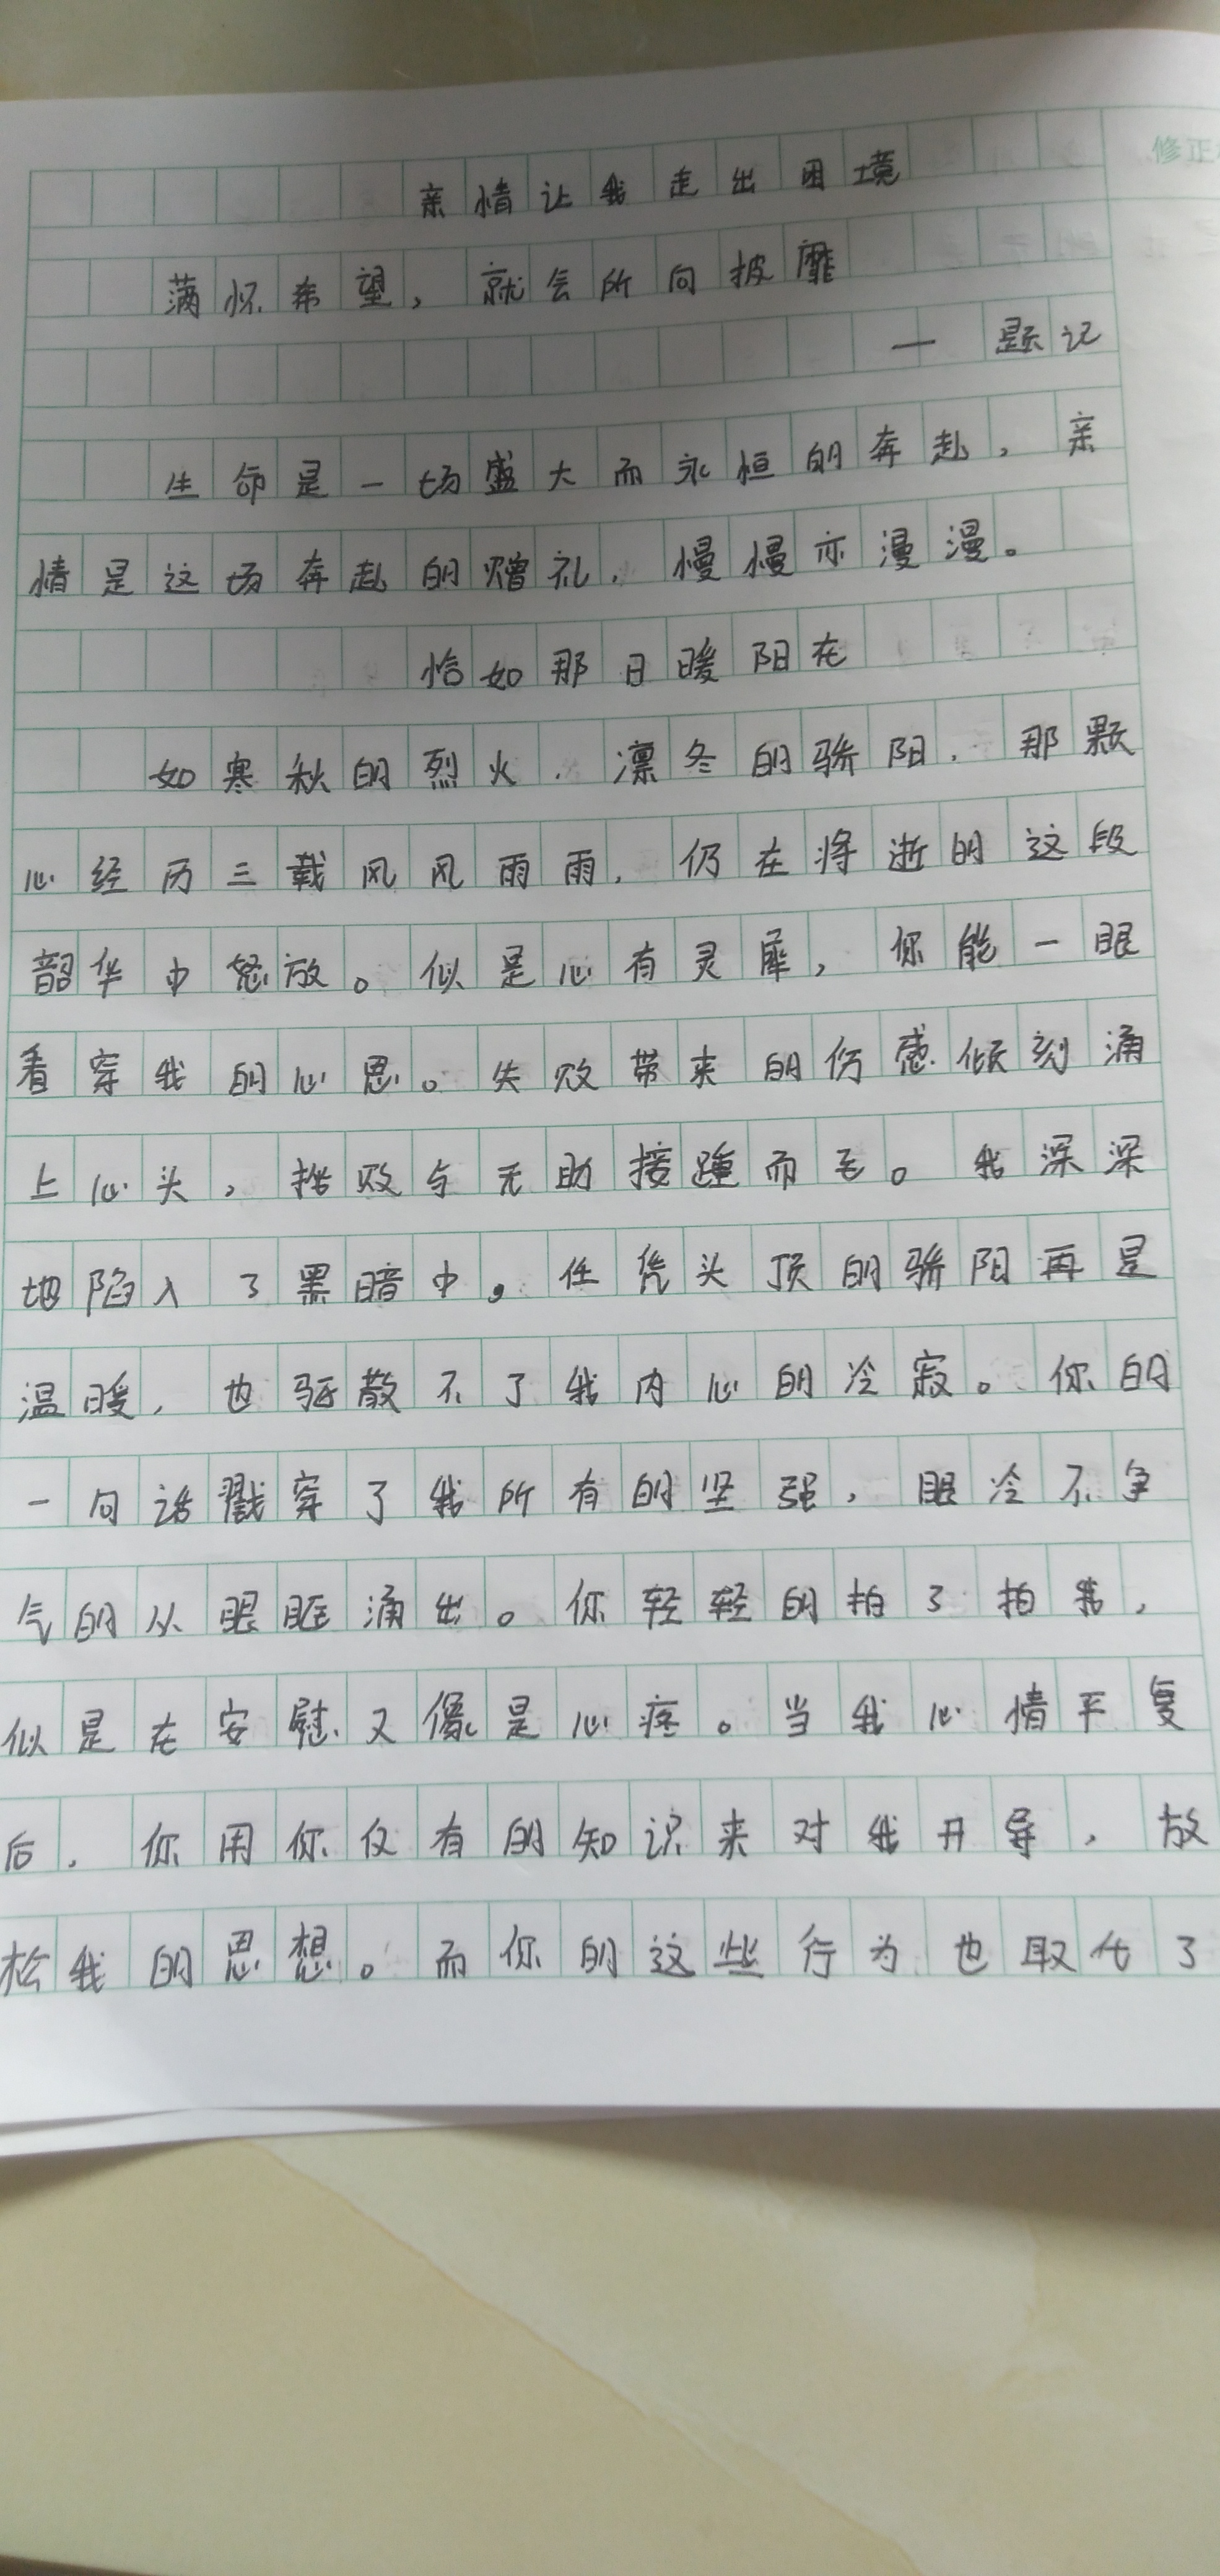 修正
亲情让我走出困境
满怀希望，就会所向披靡
——题记
生命是一场盛大而永恒的奔赴，亲
情是这场奔赴的赠礼，慢慢亦漫漫。
恰如那日暖阳在
如寒秋的烈火，凛冬的骄阳，那颗
心经历三载风风雨雨，仍在将逝的这段
韶华中怒放。似是心有灵犀，你能一眼
看穿我的心思。失败带来的伤感倾刻涌
上心头，挫败与无助接踵而至。我深深
地陷入了黑暗中。任凭头顶的骄阳再是
温暖，也驱散不了我内心的冷寂。你的
一句话戳穿了我所有的坚强，眼泠不争
气的从眼眶涌出。你轻轻的拍了拍我，
似是在安慰又像是心疼。当我心情平复
后，你用你仅有的知识来对我开导，放
松我的思想。而你的这些行为也取代了